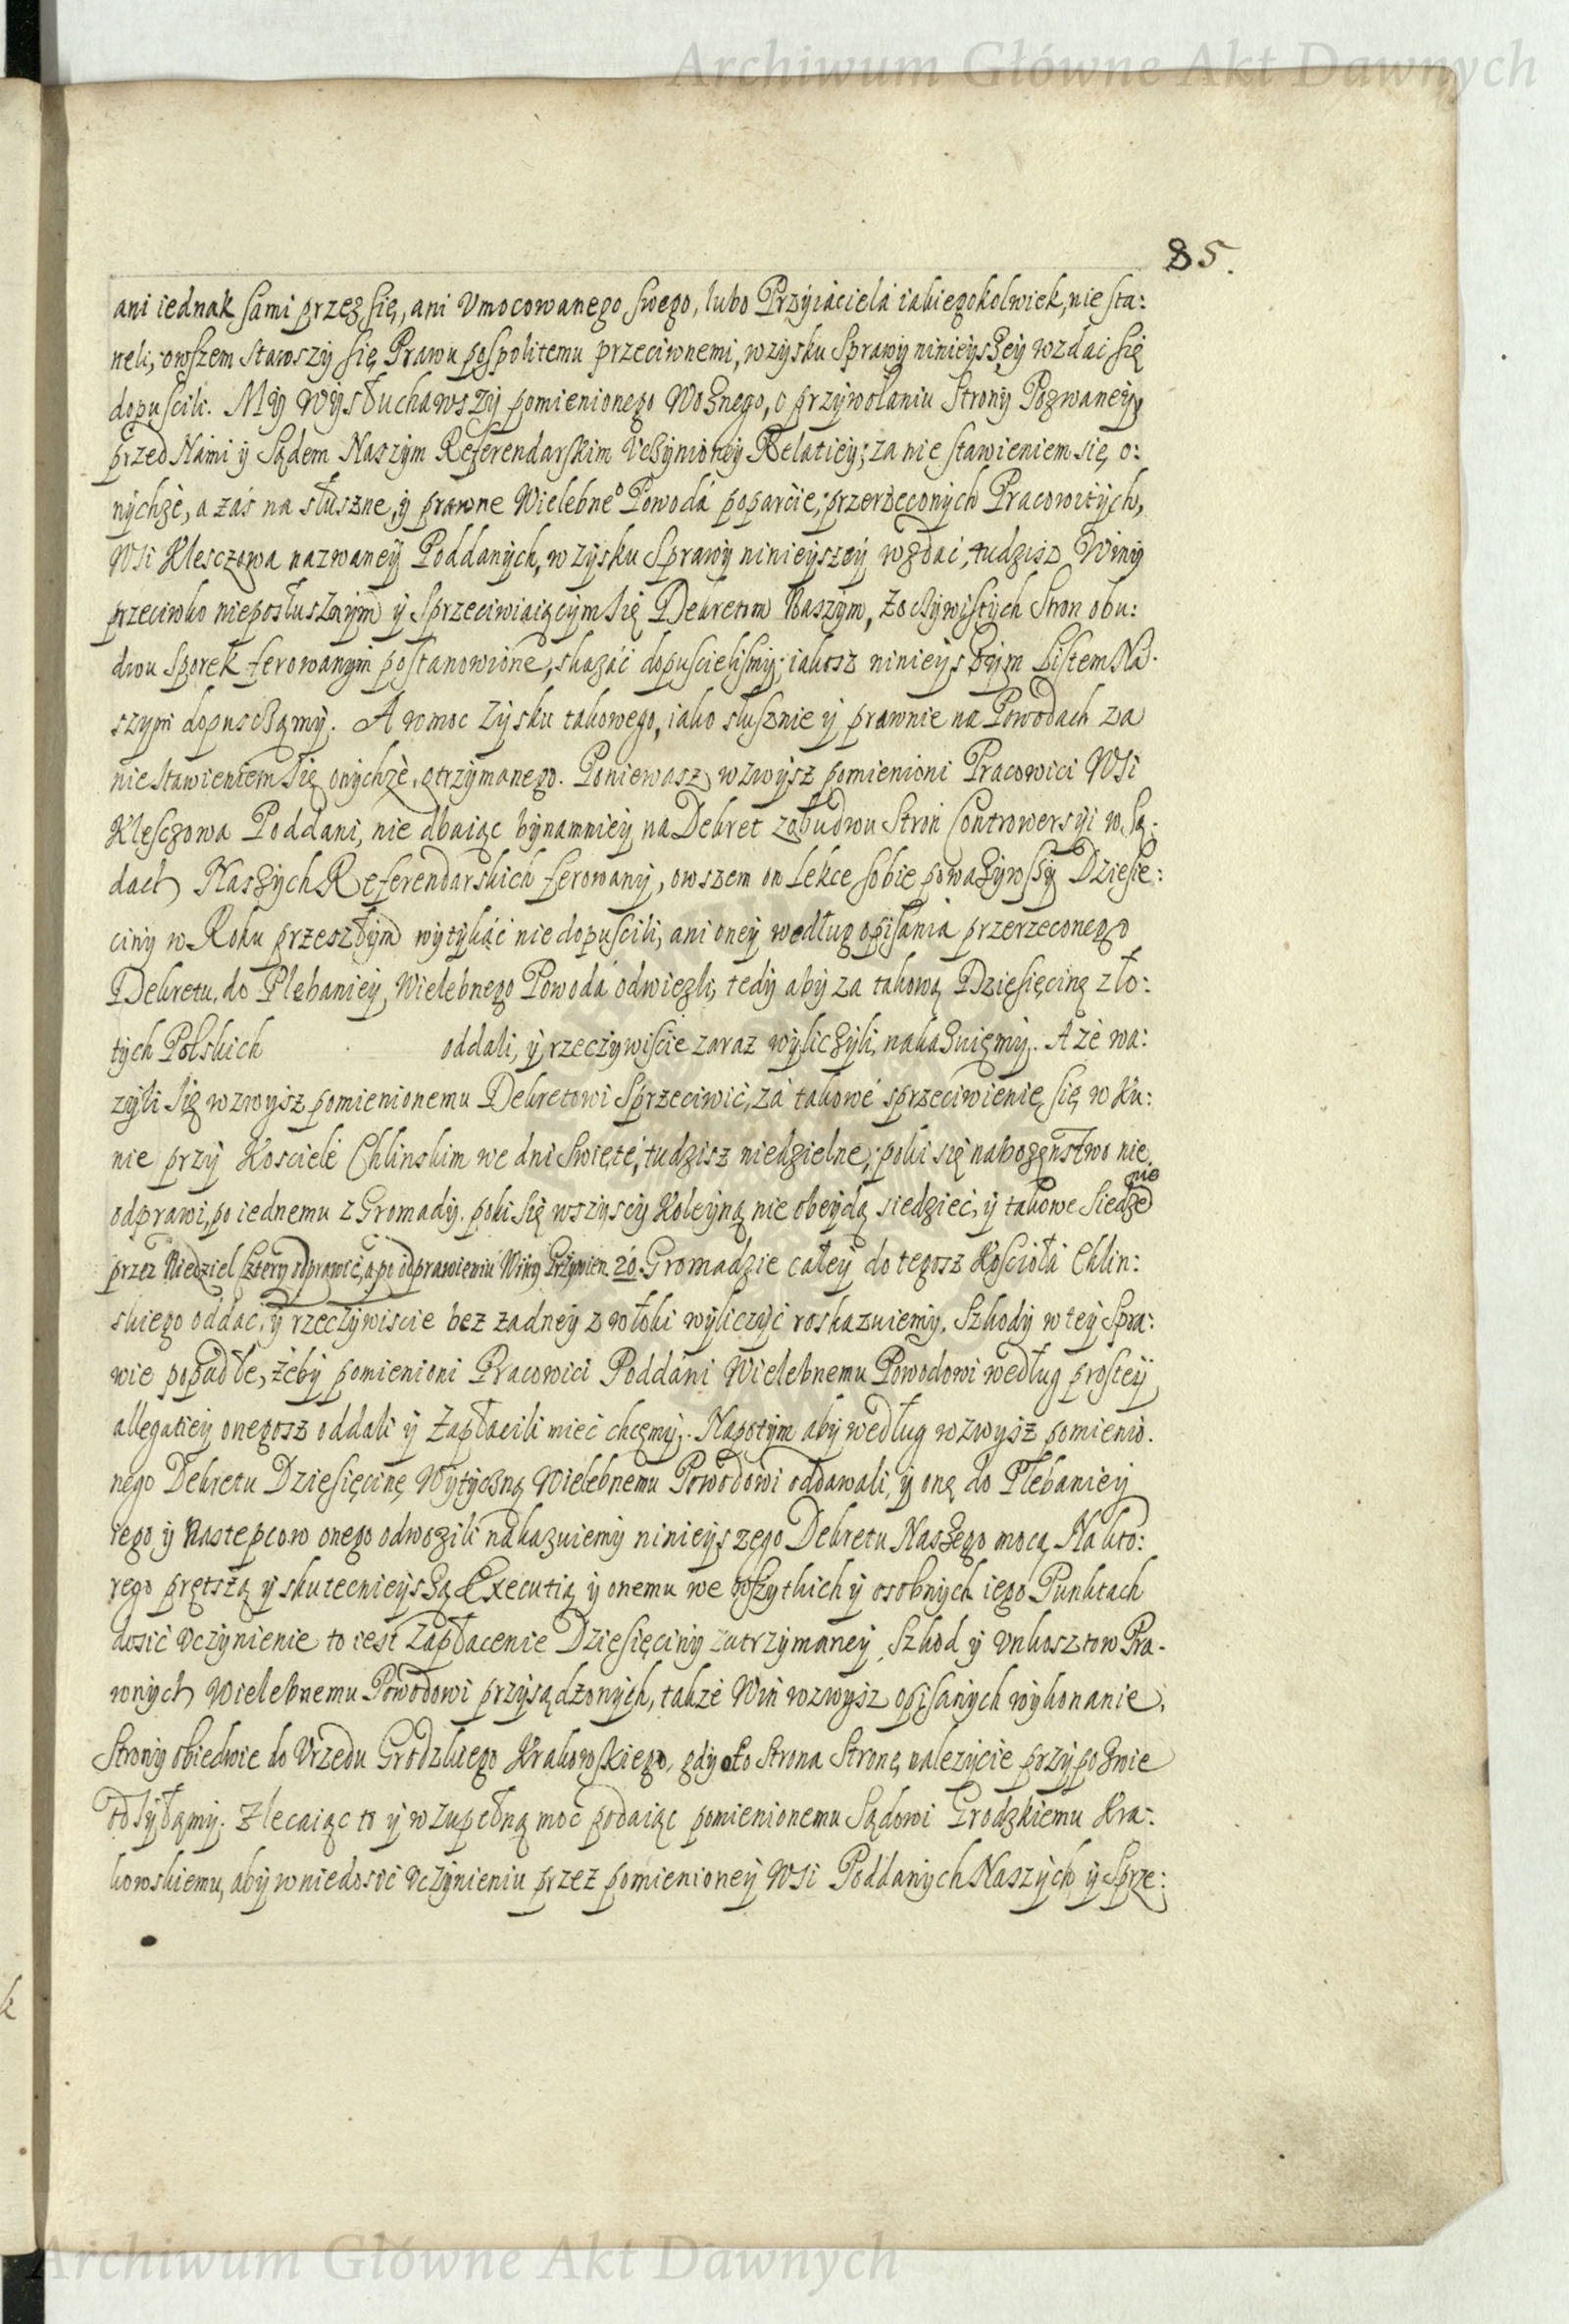 Archiwum Główne Akt Dawnych
85.
ani iednak sami przez się, ani Vmocowanego swego, lubo Przyiaciela iakiegokolwiek, nie sta:
neli, owszem stawszy się Prawu pospolitemu przeciwnemi, w zysku Sprawy ninieyszey wzdai się
dopuscili. My wysłuchawszy pomienionego Woznego, o przywołaniu Strony Pozwaney,
przed Nami y Sądem Naszym Referendarskim vczynioney Relatiey; za nie stawieniem się o:
nychże, a zaś na słuszne, y prawne Wielebneo Powoda poparcie, przerzeconych Pracowitych,
Wsi Klesczowa nazwaney Poddanych, w zysku Sprawy ninieyszey wzdai, tudzisz Winy
przeciwko nieposłusznym y sprzeciwiaiącym się Dekretom Naszym, z oczywistych Stron obu:
dwu sporek ferowanym postanowione, skazać dopuscielismy; iakosz ninieyszym Listem Na:
szym dopusczamy. A w moc Zysku takowego, iako słusznie y prawnie na Powodach za
nie stawieniem się onychże, otrzymanego. Poniewasz wzwysz pomienioni Pracowici Wsi
Klesczowa Poddani, nie dbaiąc bynamniey na Dekret z obudwu Stron Controwersyi w Są:
dach Naszych Referendarskich ferowany, owszem on lekce sobie poważywszy Dziesię:
ciny w Roku przeszłym wytykać nie dopuscili, ani oney według opisania przerzeconego
Dekretu, do Plebaniey, Wielebnego Powoda odwiezli, tedy aby za takową Dziesięcinę zło:
tych Polskich oddali, y rzeczywiscie zaraz wyliczyli, nakazuięmy. A że wa:
zyli się wzwysz pomienionemu Dekretowi sprzeciwić, za takowe sprzeciwienie się, w Ku:
nie przy Kosciele Chlinskim we dni Swięte, tudzisz niedzielne, poki się nabozęństwo nie
odprawi, po iednemu z Gromady, poki się wszyscy Koleyną nie obeydą siedzieć, y takowe siedze
nie
przez Niedziel sztery odprawić, a po odprawieniu Winy Grzywien 20. Gromadzie całey do tegosz Koscioła Chlin:
skiego oddać, y rzeczywiscie bez zadney zwłoki wyliczyć roskazuiemy. Szkody w tey Spra:
wie popadłe, żeby pomienioni Pracowici Poddani Wielebnemu Powodowi według prostey
allegatiey onegosz oddali y zapłacili mieć chcęmy. Napotym aby według wzwysz pomienio:
nego Dekretu Dziesięcinę Wytyczną Wielebnemu Powodowi oddawali, y onę do Plebaniey
iego y Nastepcow onego odwozili nakazuiemy ninieyszego Dekretu Naszego mocą. Na kto:
rego prętszą y skutecnieyszą Executią y onemu we wszytkich y osobnych iego Punktach
dosić vczynienie to iest Zapłacenie Dziesięciny zatrzymaney, Szkod y vnkosztow Pra:
wnych Wielebnemu Powodowi przysądzonych, także Win wzwysz opisanych wykonanie,
Strony obiedwie do Vrzedu Grodzkiego Krakowskiego, gdy oto Strona Stronę nalezycie przypozwie
odsyłamy. Zlecaiąc to y w zupełną moc podaiąc pomienionemu Sądowi Grodzkiemu Kra:
kowskiemu, aby w niedosić vczynieniu przez pomienioney Wsi Poddanych Naszych y Sprze:
Archiwum Główne Akt Dawnych